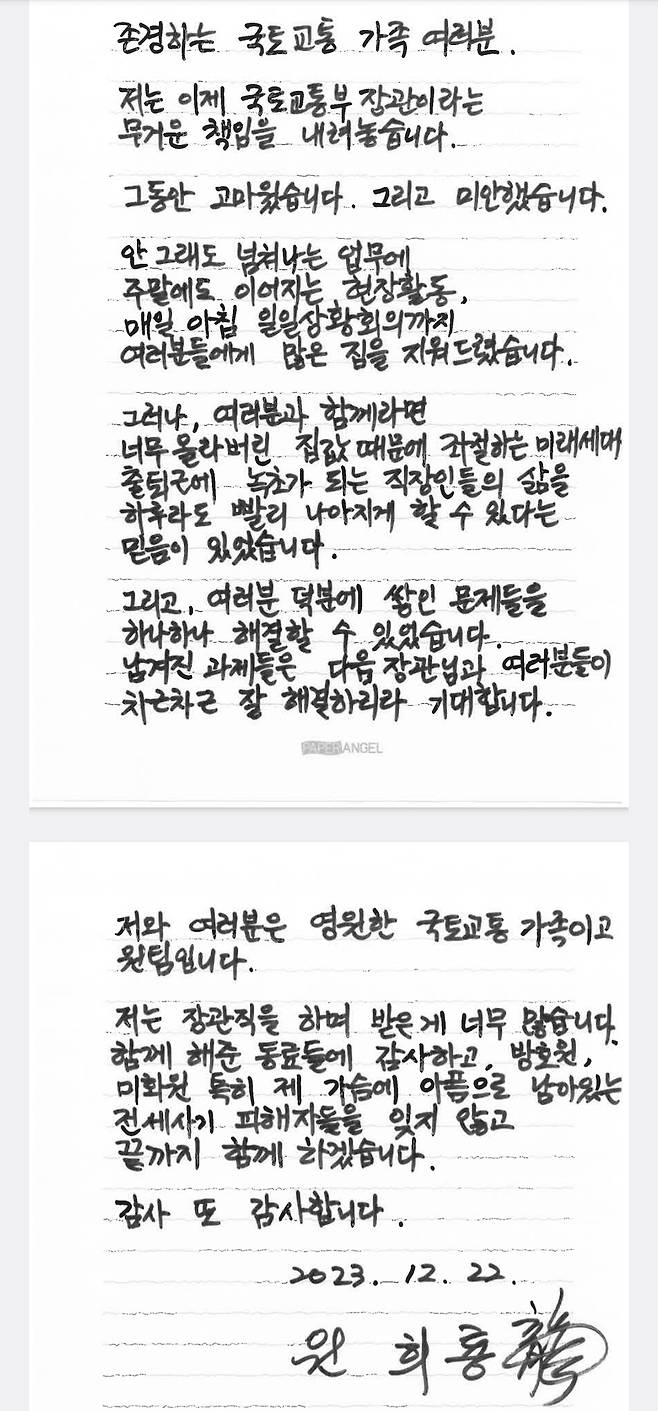 존경하는 국토교통 가족 여러분.
저는 이제 국토교통부 장관이라는
무거운 책임을 내려놓습니다.
그동안 고마웠습니다. 그리고 미안했습니다.
안 그래도 넘쳐나는 업무에
주말에도 이어지는 현장활동,
매일 아침 일일상황회의까지
여러분들에게 많은 짐을 지워드렸습니다.
그러나, 여러분과 함께라면
너무 올라버린 집값 때문에 좌절하는 미래세대
출퇴근에 녹초가 되는 직장인들의 삶을
하루라도 빨리 나아지게 할 수 있다는
믿음이 있었습니다.
그리고, 여러분 덕분에 쌓인 문제들을
하나하나 해결할 수 있었습니다.
남겨진 과제들은 다음 장관님과 여러분들이
차근차근 잘 해결하리라 기대합니다.
PAPER ANGEL
저와 여러분은 영원한 국토교통 가족이고
원팀입니다.
저는 장관직을 하며 받은게 너무 많습니다.
함께 해준 동료들에 감사하고, 방호원,
미화원 특히 제 가슴에 아픔으로 남아있는
전세사기 피해자들을 잊지 않고
끝까지 함께 하겠습니다.
감사 또 감사합니다.
2023. 12. 22.
원희룡 龍